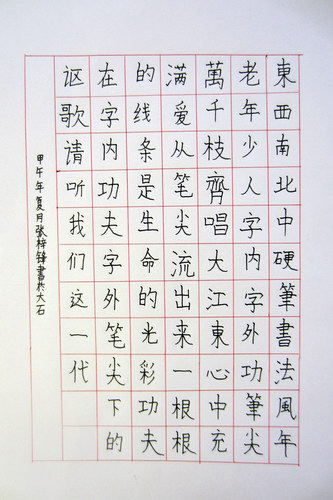 東西南北中硬筆書法風年
老年少人字内字外功筆尖
萬千枝齊唱大江東心中充
满爱从笔尖流出来一根根
的线条是生命的光彩功夫
在字内功夫字外笔尖下的
讴歌请听我们这一代
甲午年夏月张梓锋書於大石